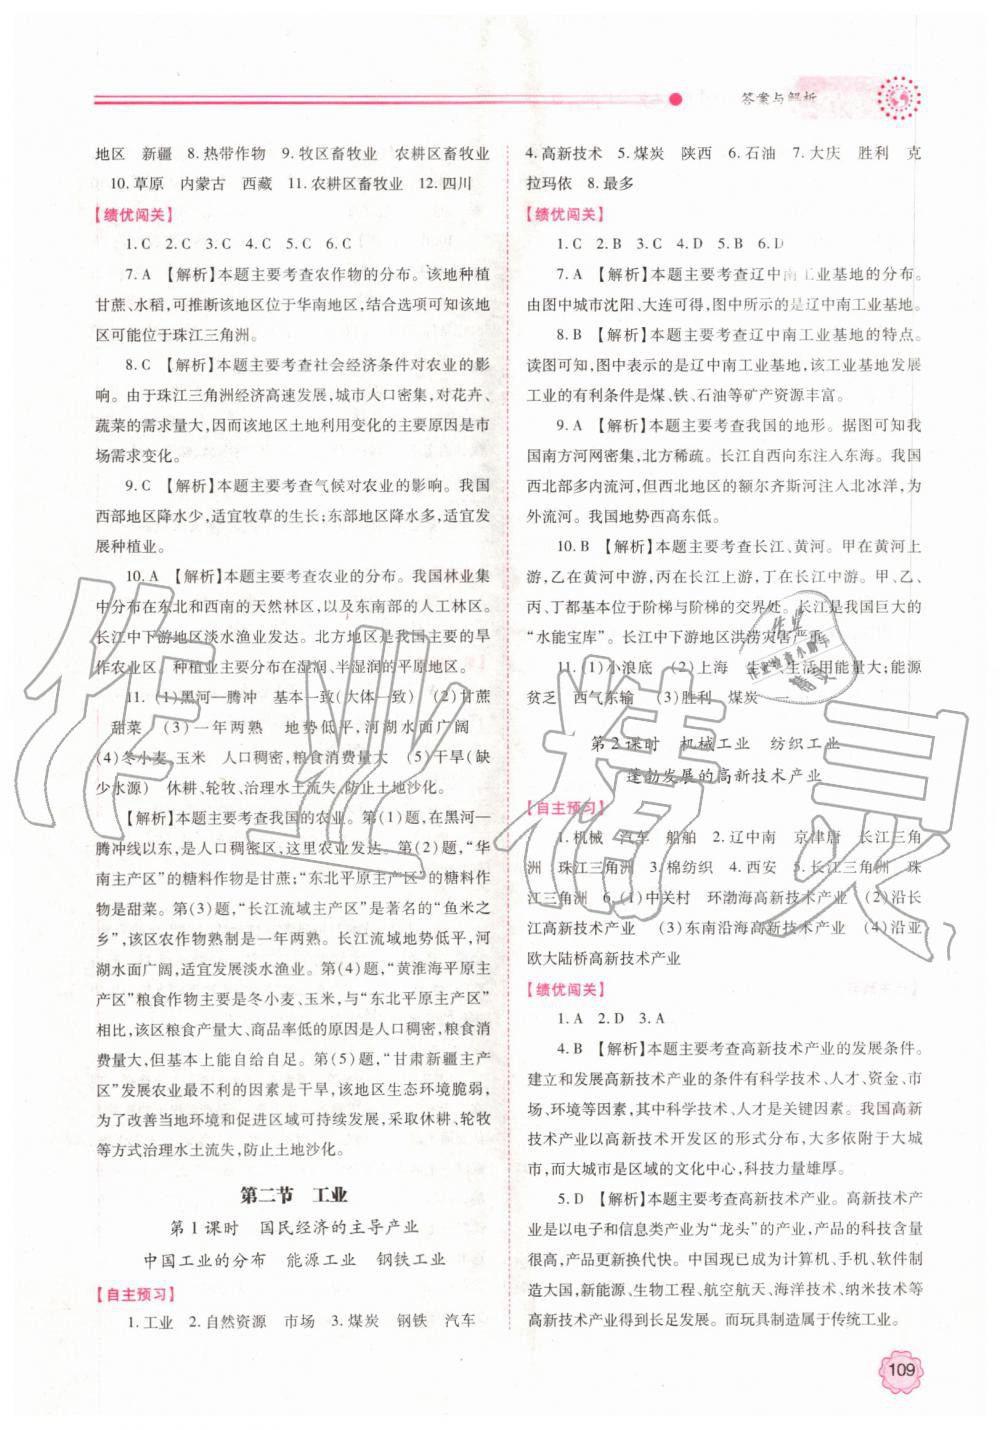 答案与解析
地区　新疆　8.热带作物　9.牧区畜牧业　农耕区畜牧业
10.草原　内蒙古　西藏　11.农耕区畜牧业　12.四川
【绩优闯关】
1.C　2.C　3.C　4.C　5.C　6.C
7.A　【解析】本题主要考查农作物的分布。该地种植
甘蔗、水稻,可推断该地区位于华南地区,结合选项可知该地
区可能位于珠江三角洲。
8.C　【解析】本题主要考查社会经济条件对农业的影
响。由于珠江三角洲经济高速发展,城市人口密集,对花卉、
蔬菜的需求量大,因而该地区土地利用变化的主要原因是市
场需求变化。
9.C　【解析】本题主要考查气候对农业的影响。我国
西部地区降水少,适宜牧草的生长;东部地区降水多,适宜发
展种植业。
10.A　【解析】本题主要考查农业的分布。我国林业集
中分布在东北和西南的天然林区,以及东南部的人工林区。
长江中下游地区淡水渔业发达。北方地区是我国主要的旱
作农业区　种植业主要分布在湿润、半湿润的平原地区。
11.(1)黑河—腾冲　基本一致(大体一致)　(2)甘蔗
甜菜　(3)一年两熟　地势低平,河湖水面广阔
(4)冬小麦、玉米　人口稠密,粮食消费量大　(5)干旱(缺
少水源)　休耕、轮牧、治理水土流失,防止土地沙化。
【解析】本题主要考查我国的农业。第(1)题,在黑河—
腾冲线以东,是人口稠密区,这里农业发达。第(2)题,“华
南主产区”的糖料作物是甘蔗;“东北平原主产区”的糖料作
物是甜菜。第(3)题,“长江流域主产区”是著名的“鱼米之
乡”,该区农作物熟制是一年两熟。长江流域地势低平,河
湖水面广阔,适宜发展淡水渔业。第(4)题,“黄淮海平原主
产区”粮食作物主要是冬小麦、玉米,与“东北平原主产区”
相比,该区粮食产量大、商品率低的原因是人口稠密,粮食消
费量大,但基本上能自给自足。第(5)题,“甘肃新疆主产
区”发展农业最不利的因素是干旱,该地区生态环境脆弱,
为了改善当地环境和促进区域可持续发展,采取休耕、轮牧
等方式治理水土流失,防止土地沙化。
第二节　工业
第1课时　国民经济的主导产业
中国工业的分布　能源工业　钢铁工业
【自主预习】
1.工业　2.自然资源　市场　3.煤炭　钢铁　汽车
4.高新技术　5.煤炭　陕西　6.石油　7.大庆　胜利　克
拉玛依　8.最多
【绩优闯关】
1.C　2.B　3.C　4.D　5.B　6.D
7.A　【解析】本题主要考查辽中南工业基地的分布。
由图中城市沈阳、大连可得,图中所示的是辽中南工业基地。
8.B　【解析】本题主要考查辽中南工业基地的特点。
读图可知,图中表示的是辽中南工业基地,该工业基地发展
工业的有利条件是煤、铁、石油等矿产资源丰富。
9.A　【解析】本题主要考查我国的地形。据图可知我
国南方河网密集,北方稀疏。长江自西向东注入东海。我国
西北部多内流河,但西北地区的额尔齐斯河注入北冰洋,为
外流河。我国地势西高东低。
10.B　【解析】本题主要考查长江、黄河。甲在黄河上
游,乙在黄河中游,丙在长江上游,丁在长江中游。甲、乙、
丙、丁都基本位于阶梯与阶梯的交界处。长江是我国巨大的
“水能宝库”。长江中下游地区洪涝灾害严重。
11.(1)小浪底　(2)上海　生产、生活用能量大;能源
贫乏　西气东输　(3)胜利　煤炭
第2课时　机械工业　纺织工业
蓬勃发展的高新技术产业
【自主预习】
1.机械　汽车　船舶　2.辽中南　京津唐　长江三角
洲　珠江三角洲　3.棉纺织　4.西安　5.长江三角洲　珠
江三角洲　6.(1)中关村　环渤海高新技术产业　(2)沿长
江高新技术产业　(3)东南沿海高新技术产业　(4)沿亚
欧大陆桥高新技术产业
【绩优闯关】
1.A　2.D　3.A
4.B　【解析】本题主要考查高新技术产业的发展条件。
建立和发展高新技术产业的条件有科学技术、人才、资金、市
场、环境等因素,其中科学技术、人才是关键因素。我国高新
技术产业以高新技术开发区的形式分布,大多依附于大城
市,而大城市是区域的文化中心,科技力量雄厚。
5.D　【解析】本题主要考查高新技术产业。高新技术产
业是以电子和信息类产业为“龙头”的产业,产品的科技含量
很高,产品更新换代快。中国现已成为计算机、手机、软件制
造大国,新能源、生物工程、航空航天、海洋技术、纳米技术等
高新技术产业得到长足发展。而玩具制造属于传统工业。
109
作业精灵